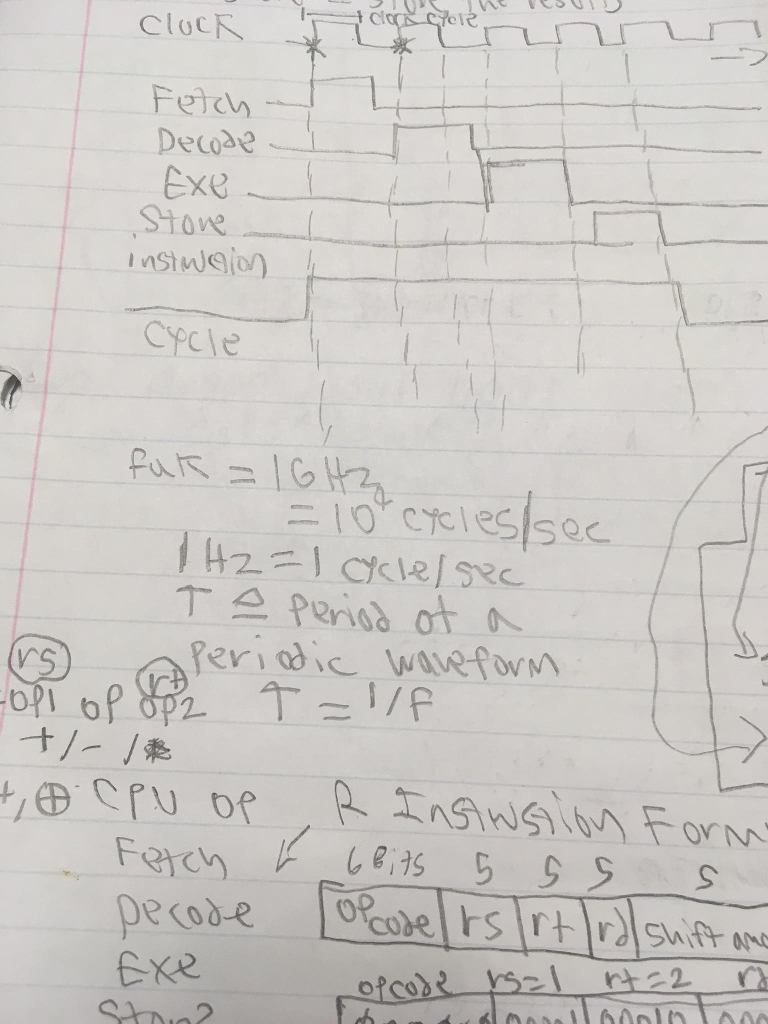 store the results
clock cycle
Clock
Fetch
Decode
Exe
Store
instruction
Cycle
fclk = 1GHz
= 10⁹ cycles/sec
1 Hz = 1 cycle/sec
T ≜ period of a
periodic waveform
rs
rt
op1 op op2 T = 1/F
+/-/*
+, ⊕ CPU op R Instruction Form
Fetch 6 Bits 5 5 5 5
Decode opcode rs rt rd shift amo
Exe opcode rs=1 rt=2 rd
Store